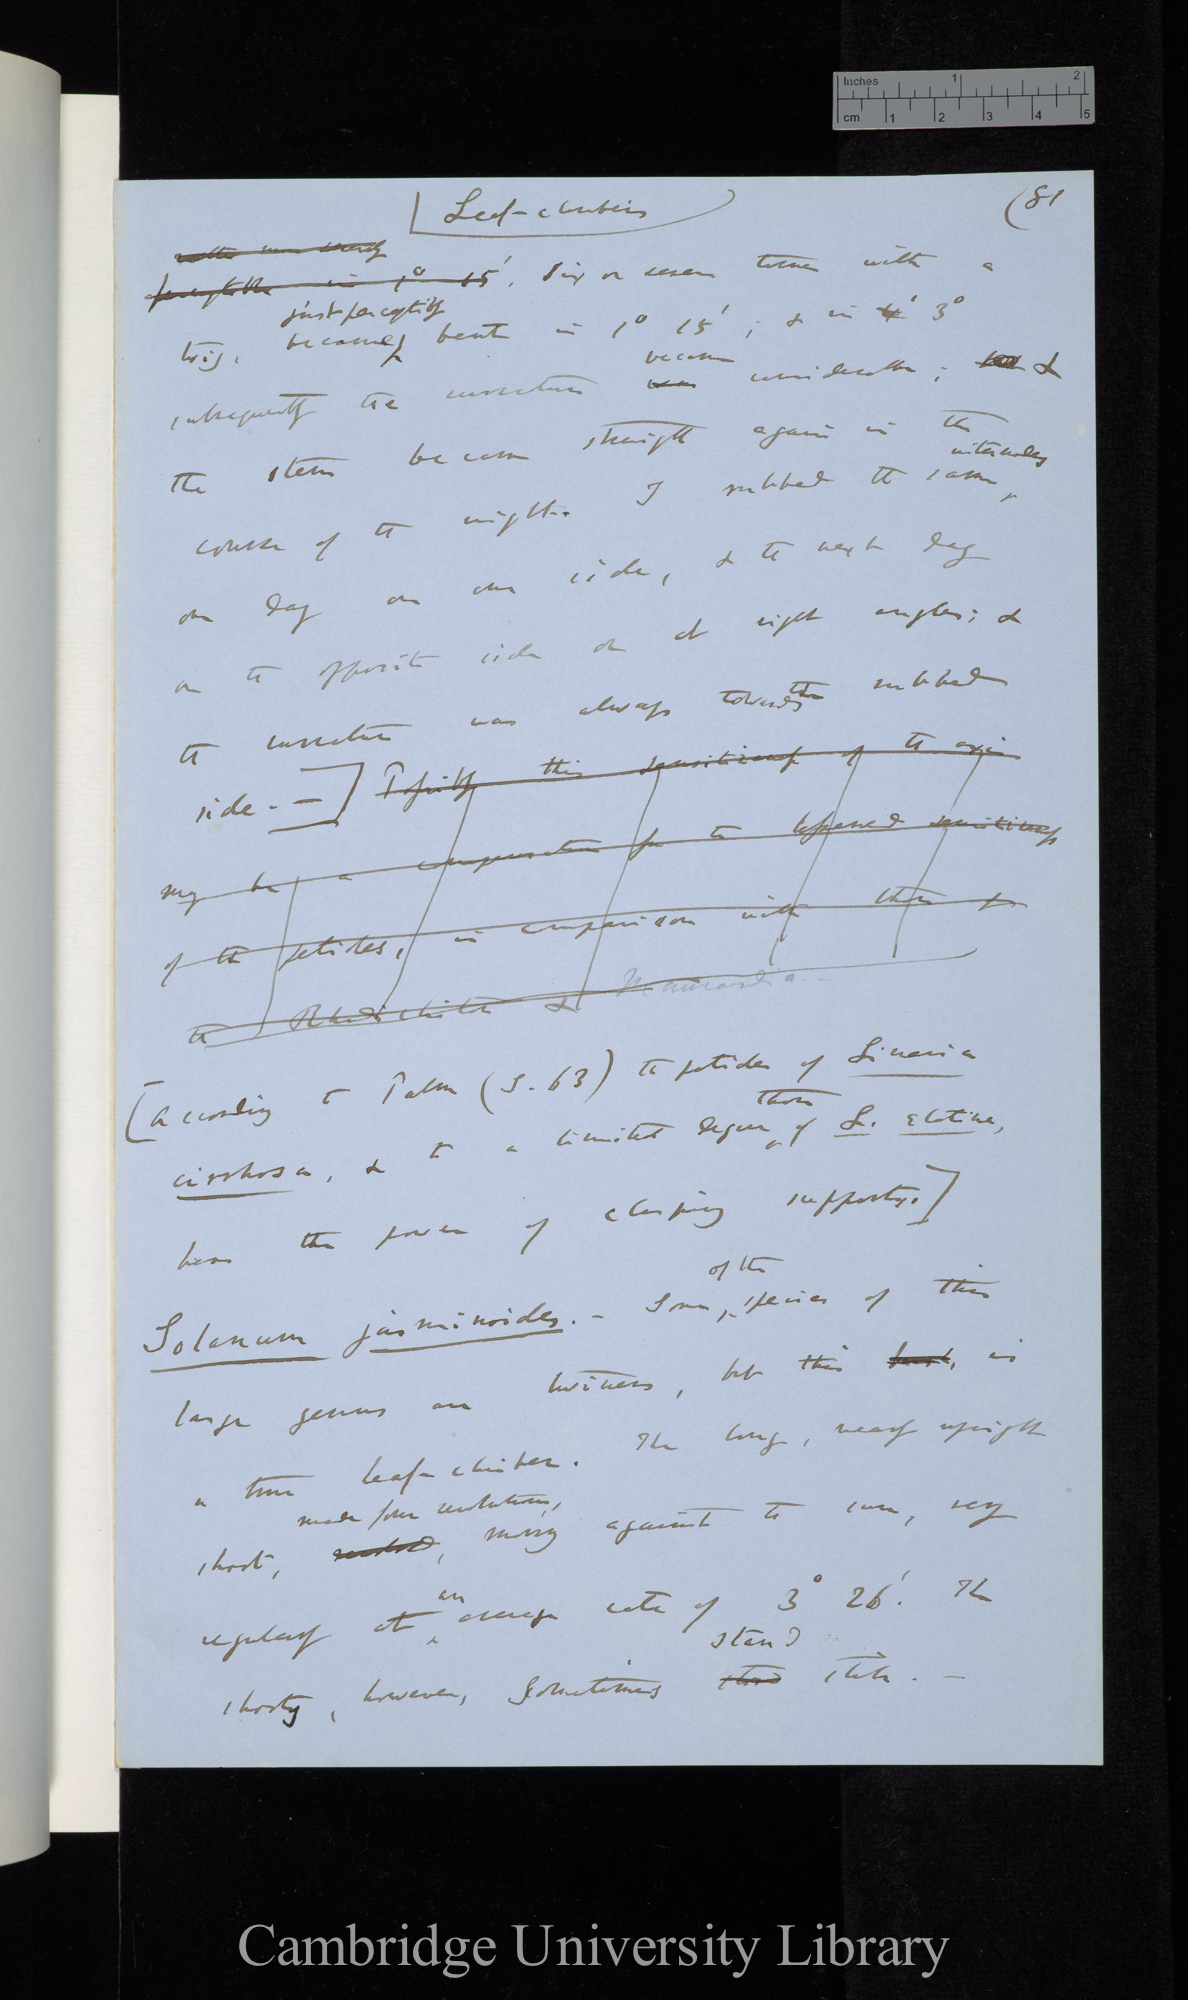 Inches 1 2
cm 1 2 3 4 5
Leaf-climbers
(81
perceptible in 1° 15'. Six or seven times with a
just perceptibly
twig, became bent in 1° 15'; & in 4' 3°
became
subsequently the curvature was considerable; but &
the stem became straight again in the
internodes
course of the night. I rubbed the same
one day on one side, & the next day
on the opposite side or at right angles; &
the curvature was always towards the rubbed
side. —] Possibly this sensitiveness of the axis
may be a compensation for the lessened sensitiveness
of the petioles, in comparison with those of
the Rhodochiton & Maurandia. -
[According to Palm (S. 63) the petioles of Linaria
those
cirrhosa, & to a limited degree of L. elatine,
have the power of clasping supports.]
of the
Solanum jasminoides. - Some species of this
large genus are twiners, but this is
a true leaf-climber. The long, nearly upright
made four revolutions,
shoot, revolved, moving against the sun, very
an
regularly at average rate of 3° 26'. The
stand
shoots, however, sometimes stood still. —
Cambridge University Library